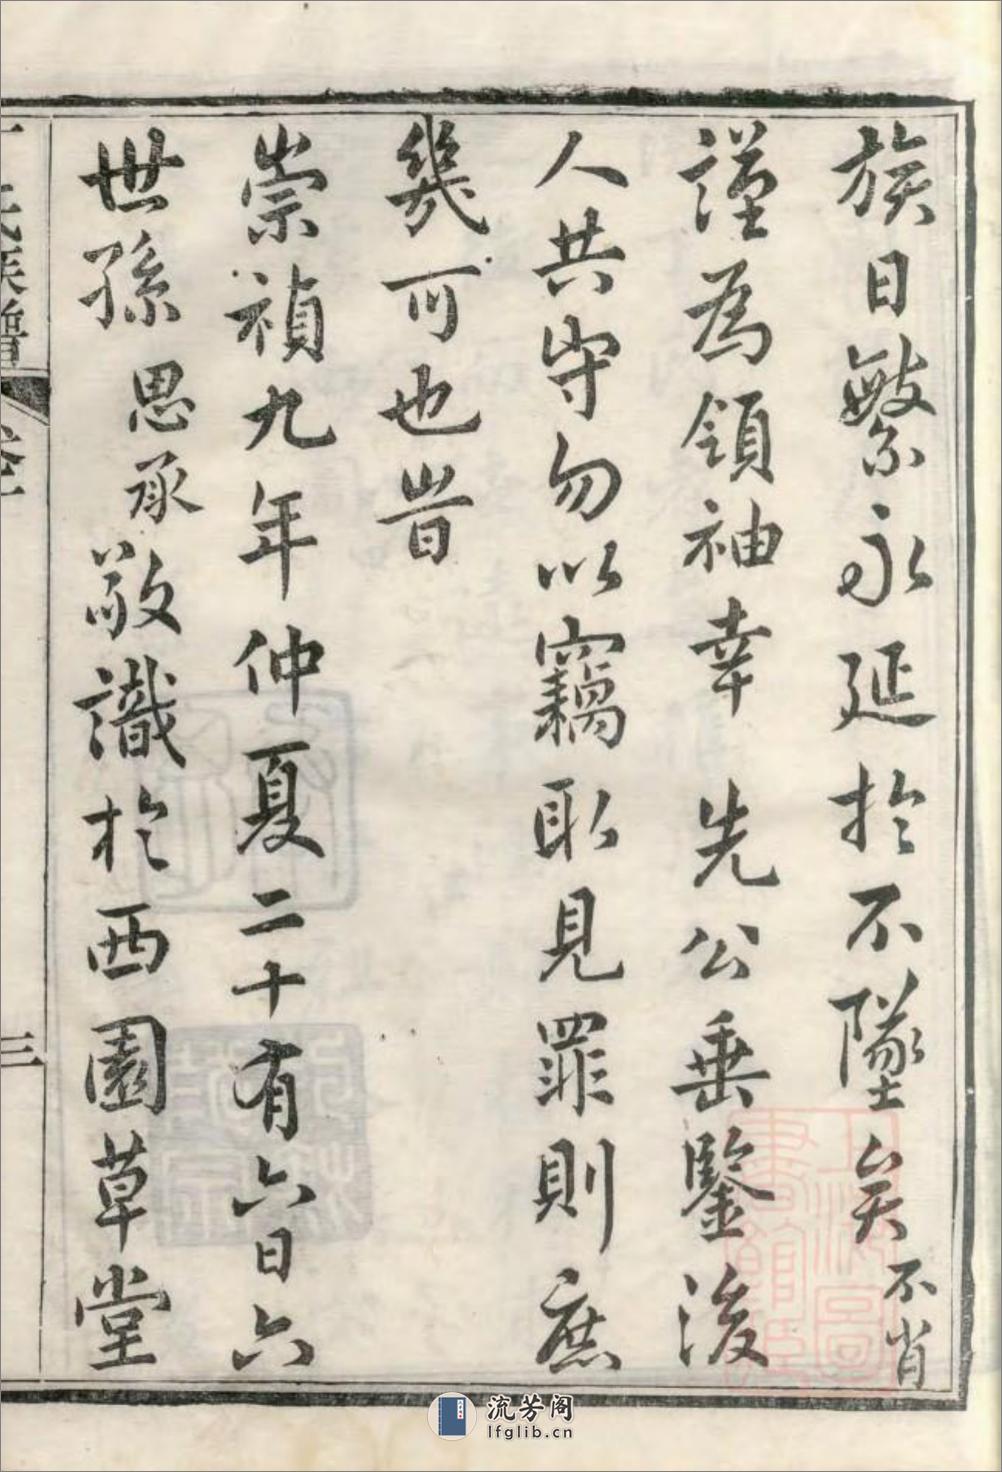 族日繁永延於不墜矣不肖
謹為領袖幸 先公垂鑒後
人共守勿以竊取見罪則庶
幾可也旹
崇禎九年仲夏二十有六日六
世孫思承敬識於西園草堂
氏族譜 卷 三
流芳阁
lfglib.cn